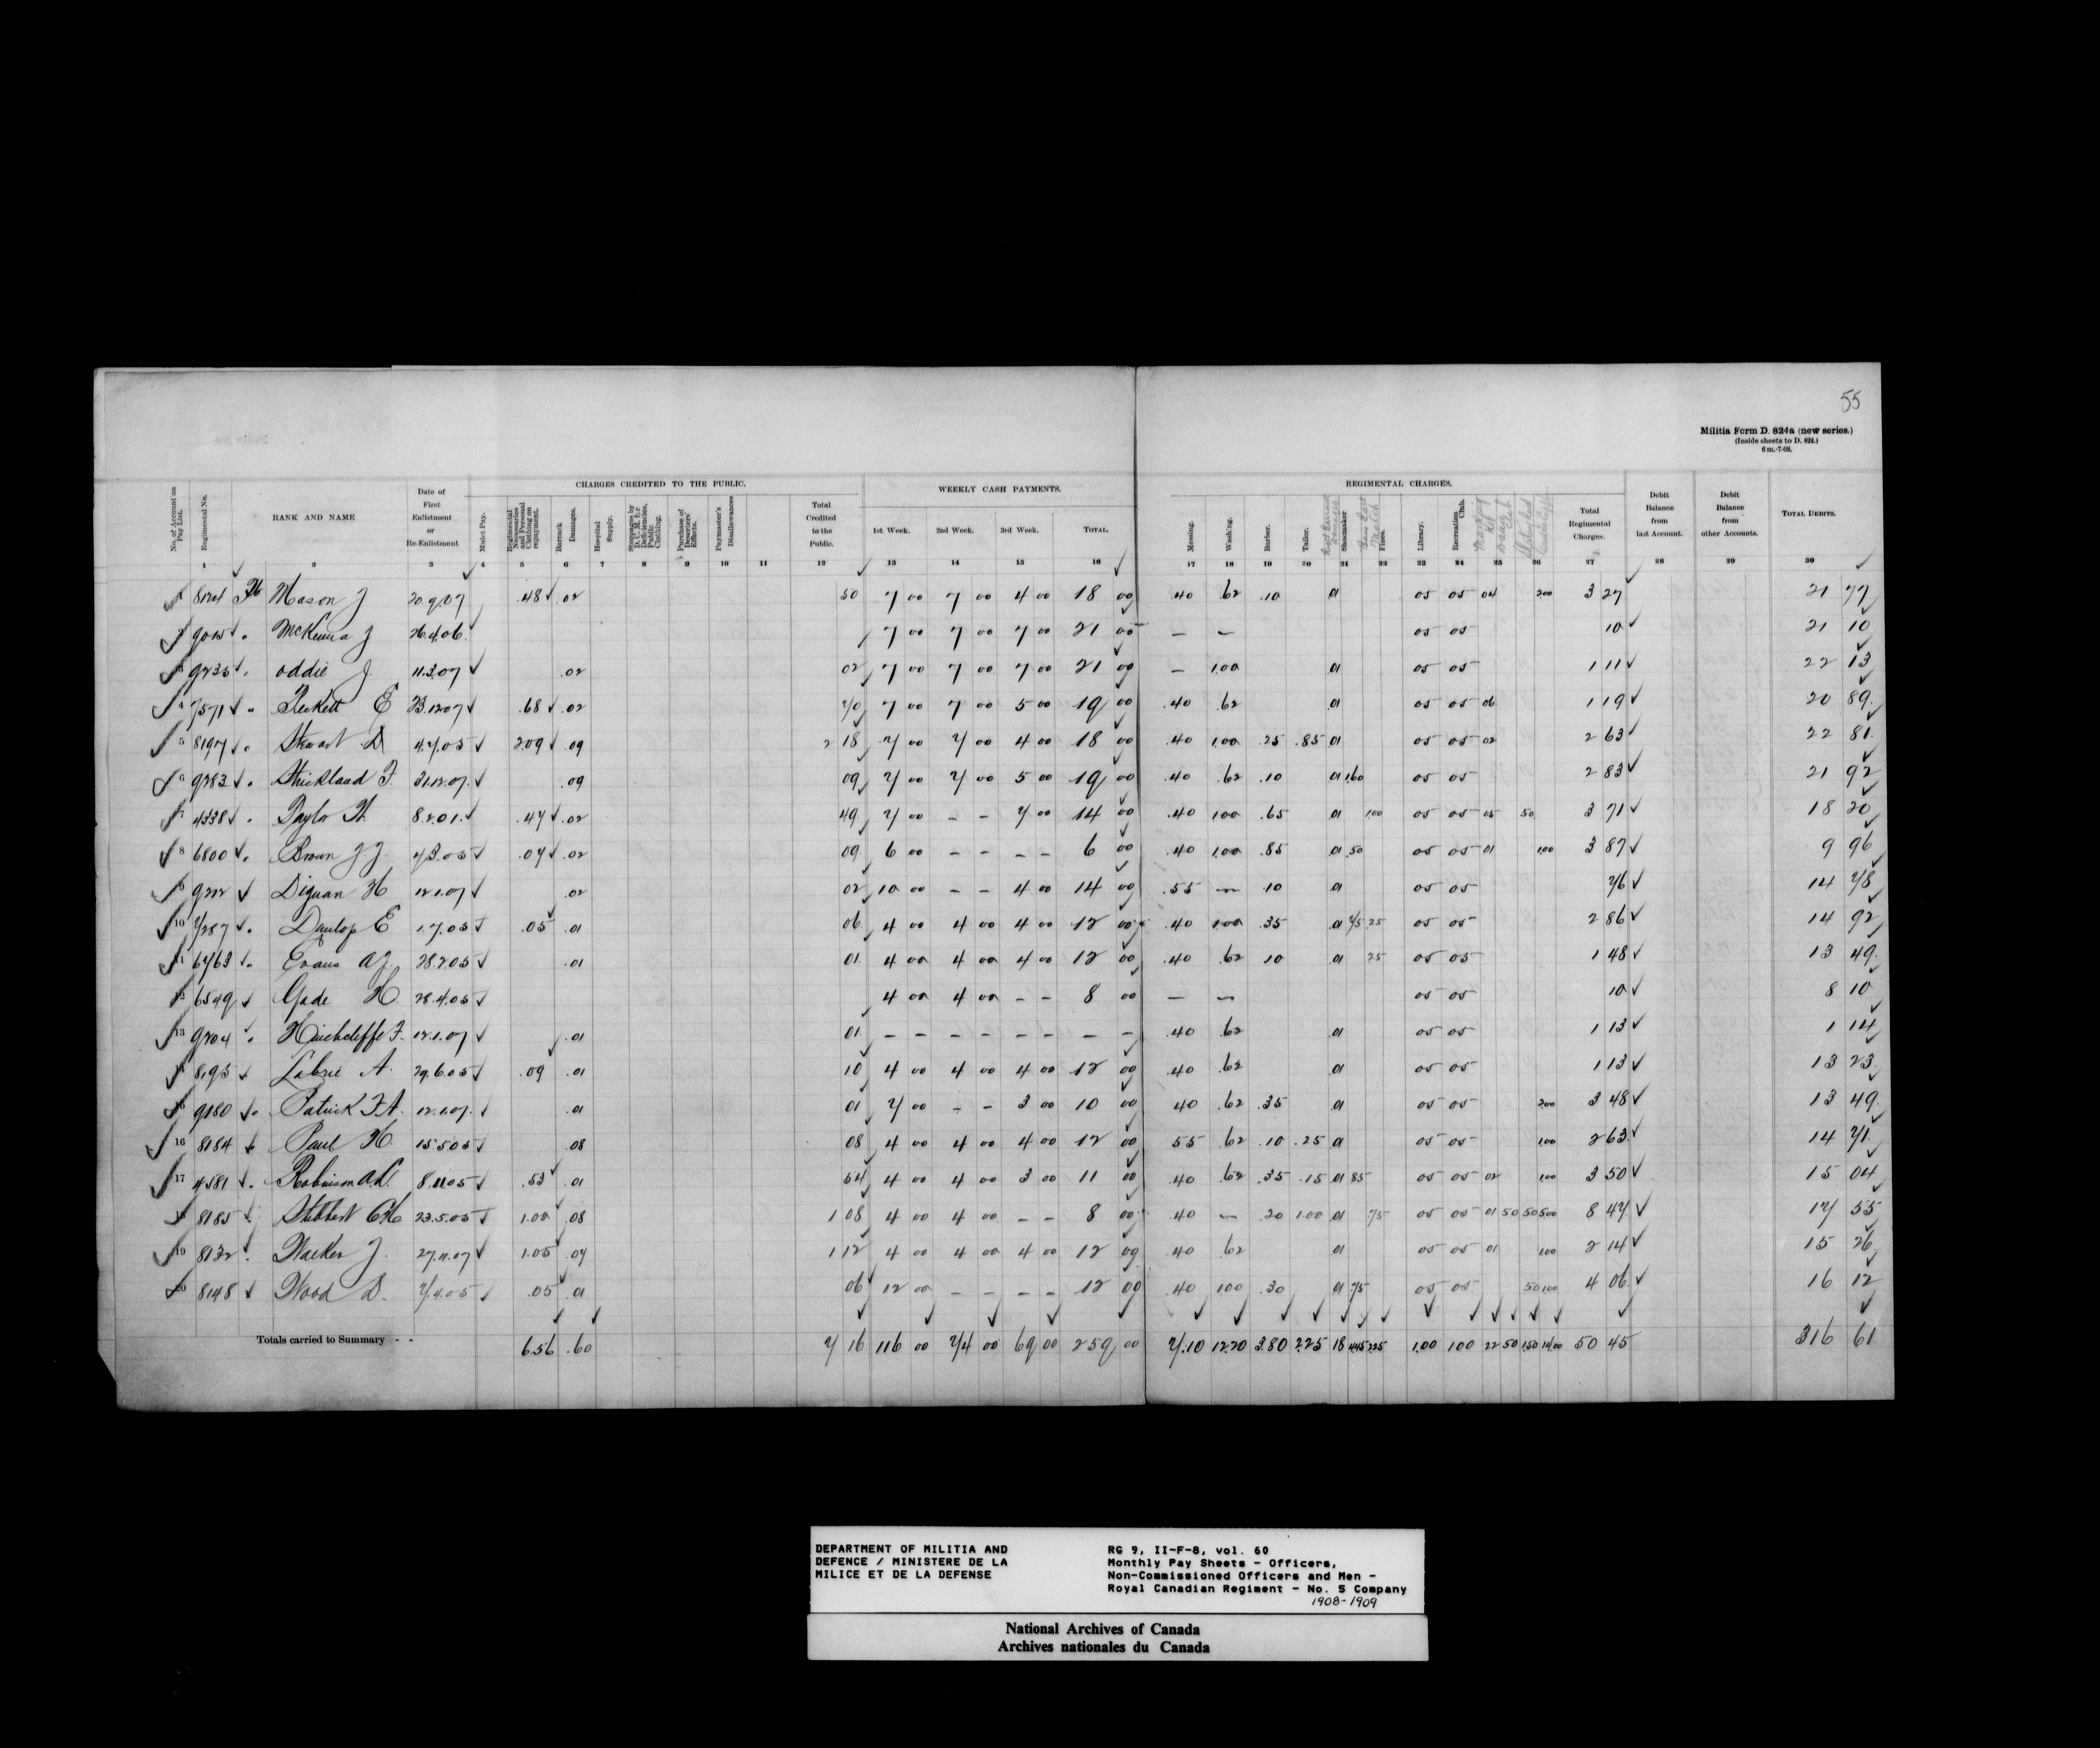 55
Militia Form D. 824a (new series.)
(Inside sheets to D. 824.)
6 m.-7-08.
CHARGES CREDITED TO THE PUBLIC. WEEKLY CASH PAYMENTS. REGIMENTAL CHARGES.
No. of Account on Pay List. Regimental No. RANK AND NAME Date of First Enlistment or Re-Enlistment Mulct Pay. Regimental Necessaries and Personal Clothing on repayment. Barrack Damages. Hospital Supply. Stoppages by D. C. M. for Deficiencies, Public Clothing. Purchase of Deserters' Effects. Paymaster's Disallowances Total Credited to the Public. 1st Week. 2nd Week. 3rd Week. TOTAL. Messing. Wash'ng. Barber. Tailor. Shoemaker Fines. Library. Recreation Club. Total Regimental Charges. Debit Balance from last Account. Debit Balance from other Accounts. TOTAL DEBITS.
1 2 3 4 5 6 7 8 9 10 11 12 13 14 15 16 17 18 19 20 21 22 23 24 25 26 27 28 29 30
1 8124 Pte Mason J 20.9.07 .48 .02 50 7 00 7 00 4 00 18 00 .40 .62 .10 .01 05 05 04 2.00 3 27 21 77
9015 " McKenna J 26.4.06. 7 00 7 00 7 00 21 00 — — 05 05 10 21 10
9235 " Oddie J. 11.3.07 .02 02 7 00 7 00 7 00 21 00 — 1.00 .01 05 05 1 11 22 13
4 7571 " E 23.12.07 .68 .02 70 7 00 7 00 5 00 19 00 .40 .62 .01 05 05 06 1 19 20 89
5 8197 " Stewart D 4.7.05 2.09 .09 2 18 7 00 7 00 4 00 18 00 .40 1.00 .25 .85 .01 05 05 02 2 63 22 81
6 9283 " Strickland F. 31.12.07. .09 09 7 00 7 00 5 00 19 00 .40 .62 .10 .01 1.60 05 05 2 83 21 92
7 4338 " Taylor H. 8.2.01. .47 .02 49 7 00 - - 7 00 14 00 .40 1.00 .65 .01 1.00 05 05 05 50 3 71 18 20
8 6800 " Brown J J 7.3.05 .07 .02 09 6 00 - - - - 6 00 .40 1.00 .85 .01 .50 05 05 01 1.00 3 87 9 96
9 9212 Diguan H 12.1.07 .02 02 10 00 - - 4 00 14 00 .55 — .10 .01 05 05 76 14 78
10 7287 " Dunlop E 1.7.05 .05 .01 06 4 00 4 00 4 00 12 00 .40 1.00 .35 .01 75 25 05 05 2 86 14 92
11 6763 " Evans A J 28.2.05 .01 01 4 00 4 00 4 00 12 00 .40 .62 10 .01 25 05 05 1 48 13 49
12 6549 Gade H. 28.4.05 4 00 4 00 - - 8 00 — — 05 05 10 8 10
13 9204 " Hinchcliffe F. 12.1.07 .01 01 - - - - - - - - .40 .62 .01 05 05 1 13 1 14
14 8195 Labrie A. 29.6.05 .09 .01 10 4 00 4 00 4 00 12 00 .40 .62 .01 05 05 1 13 13 23
15 9180 " Patrick F A. 12.1.07. .01 01 7 00 - - 3 00 10 00 40 .62 .35 .01 05 05 2.00 3 48 13 49
16 8184 Paul H. 15.5.05 .08 08 4 00 4 00 4 00 12 00 55 .62 .10 .25 .01 05 05 1.00 2 63 14 71
17 4581 " Robinson A. 8.11.05 .53 .01 54 4 00 4 00 3 00 11 00 .40 .62 .35 .15 .01 85 05 05 02 1.00 3 50 15 04
18 8185 " Stubbert C H 23.5.05 1.00 .08 1 08 4 00 4 00 - - 8 00 .40 — .20 1.00 .01 .75 05 05 01 50 50 5.00 8 47 17 55
19 8132 " Walker J. 27.11.07 1.05 .07 1 12 4 00 4 00 4 00 12 00 .40 .62 .01 05 05 01 1.00 2 14 15 26
20 8148 Wood D. 7.4.05 .05 .01 06 12 00 - - - - 12 00 .40 1.00 .30 .01 .75 05 05 50 1.00 4 06 16 12
Totals carried to Summary - - 6.56 .60 7 16 116 00 74 00 69 00 259 00 7.10 12.20 3.80 2.25 18 4.45 2.25 1.00 1.00 22 50 1.50 14.00 50 45 316 61
DEPARTMENT OF MILITIA AND
DEFENCE / MINISTERE DE LA
MILICE ET DE LA DEFENSE
RG 9, II-F-8, vol. 60
Monthly Pay Sheets - Officers,
Non-Commissioned Officers and Men -
Royal Canadian Regiment - No. 5 Company
1908-1909
National Archives of Canada
Archives nationales du Canada